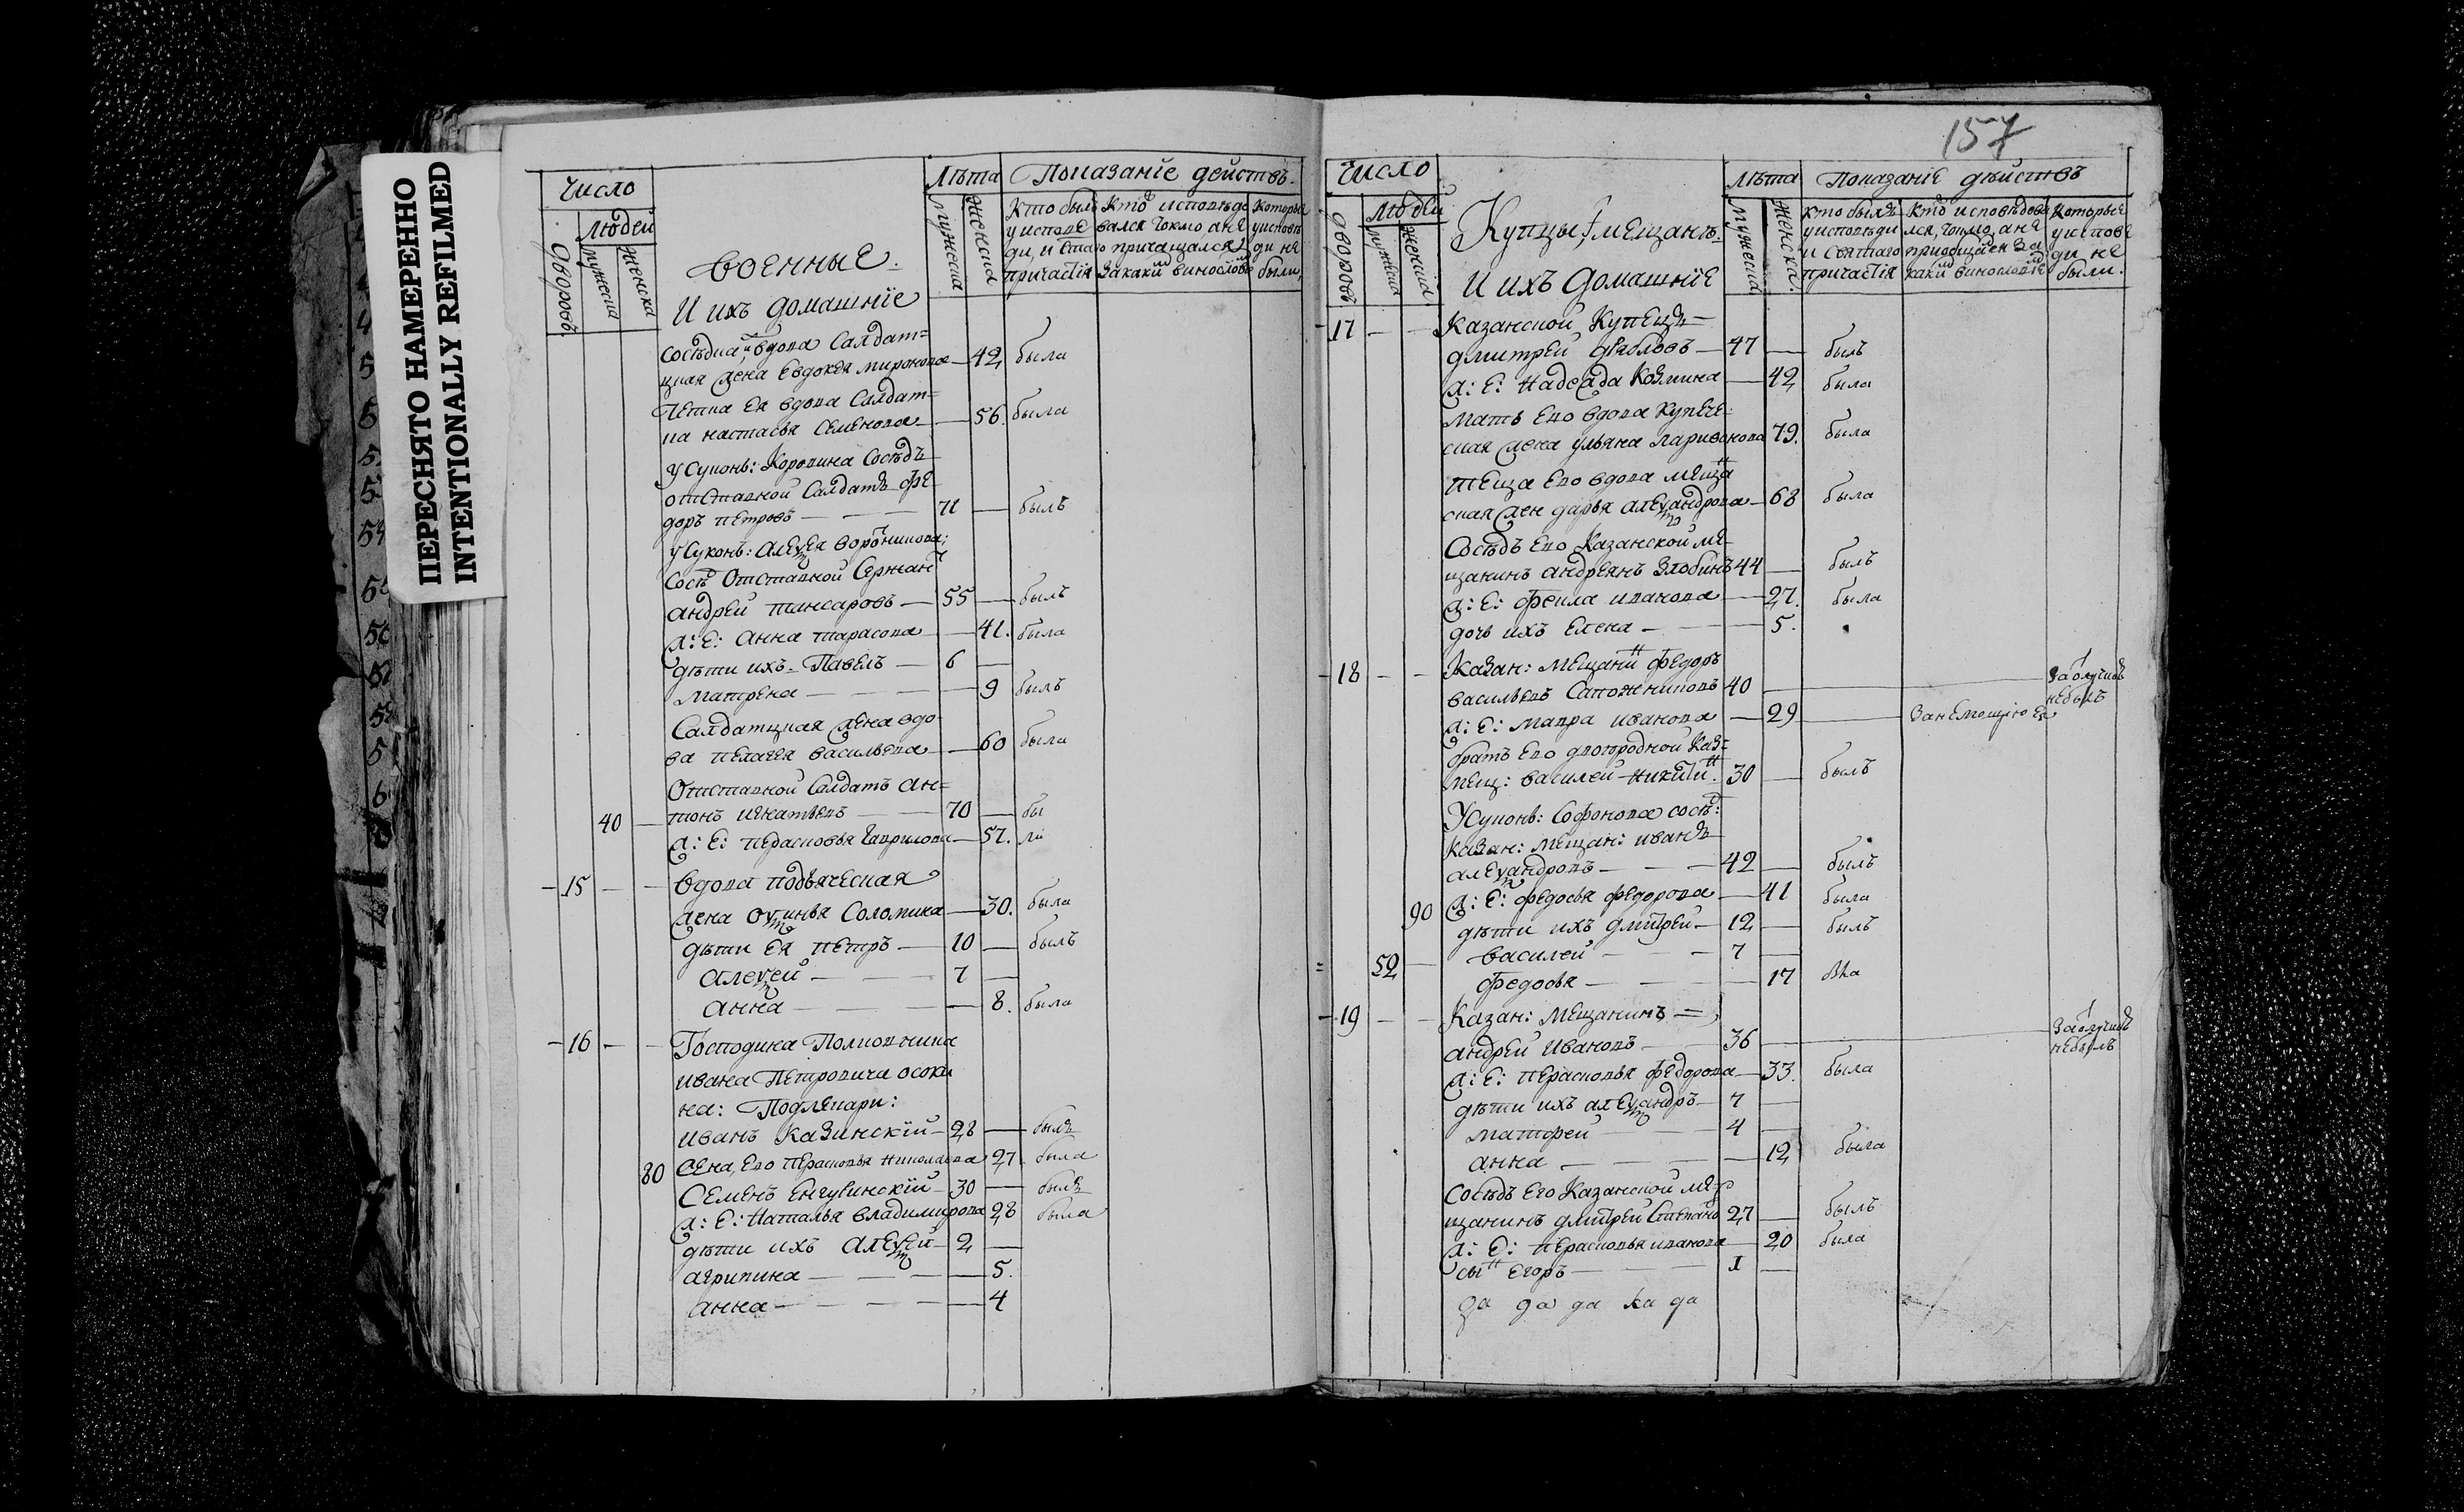 ПЕРЕСНЯТО НАМЕРЕННО
INTENTIONALLY REFILMED
Число
Лѣта Показаніе действъ.
людей
дворовъ
мужеска
женска
военные.
И ихъ домашніе
мужеска
женска
Кто былъ
у испове
ди, и стаго
причастія
Кто исповѣдо
вался токмо а не
причащался
за какимъ винословіемъ
которые
у исповѣ
ди не
были,
вдова Салдат=
цкая жена Евдокея миронова — 42 была
Тетка ея вдова Салдат=
ка настасья Семенова — 56. была
У Суконъ: Коровина Сосѣдъ
отставной Салдатъ Фе
доръ Петровъ — 71 — былъ
У Суконъ: Алеѯея
Сосѣ Отставной Сержан
Андрей — 55 — былъ
ж: е: Анна Тарасова — 41. была
дѣти ихъ Павелъ — 6 —
Матрена — 9 былъ
Салдатцкая жена вдо
ва Пелагея Васильева — 60 была
Отставной Салдатъ Ан=
40 — тонъ Игнатьевъ — 70 — бы
ж: е: Перасковья Гаврилова — 57. ли
— 15 — — Вдова подъяческая
жена Оѯинья Соломина — 30. была
дѣти ея Петръ — 10 — былъ
Алеѯей — 7 —
Анна — 8. была
— 16 — — Господина Полковника
Ивана Петровича Осоки
на: Подлекари:
Иванъ Казинскій — 28 — былъ
80 Жена Ево Перасковья Николаева 27 была
Семенъ — 30 — былъ
ж: е: Наталья Владимирова 28 была
дѣти ихъ Алеѯей — 2 —
Агрипина — 5.
Анна — 4
157
Число
Лѣта Показаніе дѣйствъ
людей
дворовъ
мужеска
женска
Купцы, мещане
И ихъ домашніе
мужеска
женска.
Кто былъ
у исповѣди
и святаго
причастія
Кто исповѣдова
лся, токмо, а не
за
какимъ винословіемъ
которые
у испове
ди не
были.
— 17 — — Казанской Купецъ
Дмитрей Дябловъ — 47 — былъ
ж: е: Надежда Козмина — 42 была
Мать Ево вдова купече
ская жена Ульяна Ларионова 79. была
Теща Ево вдова меща
ская жен Дарья Алеѯандрова — 68 была
Сосѣдъ Ево Казанской ме
щанинъ Андреянъ Злобинъ 44 — былъ
ж: е: Фекла Иванова — 27. была
дочь ихъ Елена — 5.
— 18 — — Казан: Мещанин Федоръ
Васильевъ Сапожниковъ 40 — за отлучкой небылъ
ж: е: Мавра Иванова — 29 — за немощію ея
братъ Ево двоюродной Каз=
мещ: Василей Никитин. 30 — былъ
У Суконъ: Софонова сосѣ:
Казан: Мещан: Иванъ
Алеѯандровъ — 42 — былъ
90 ж: е: Федосья Федорова — 41 была
дѣти ихъ Дмитрей — 12 — былъ
52 — Василей — 7 —
Федосья — 17 была
— 19 — — Казан: Мещанинъ =
Андрей Ивановъ — 36 — за отлучкой небылъ
ж: е: Перасковья Федорова — 33. была
дѣти ихъ Алеѯандръ — 7 —
Матфей — 4 —
Анна — 12 была
Сосѣдъ Его Казанской ме=
щанинъ Дмитрей Степано 27 — былъ
ж: е: Перасковья Иванова — 20 была
сын Егоръ — 1 —
да да да ка да